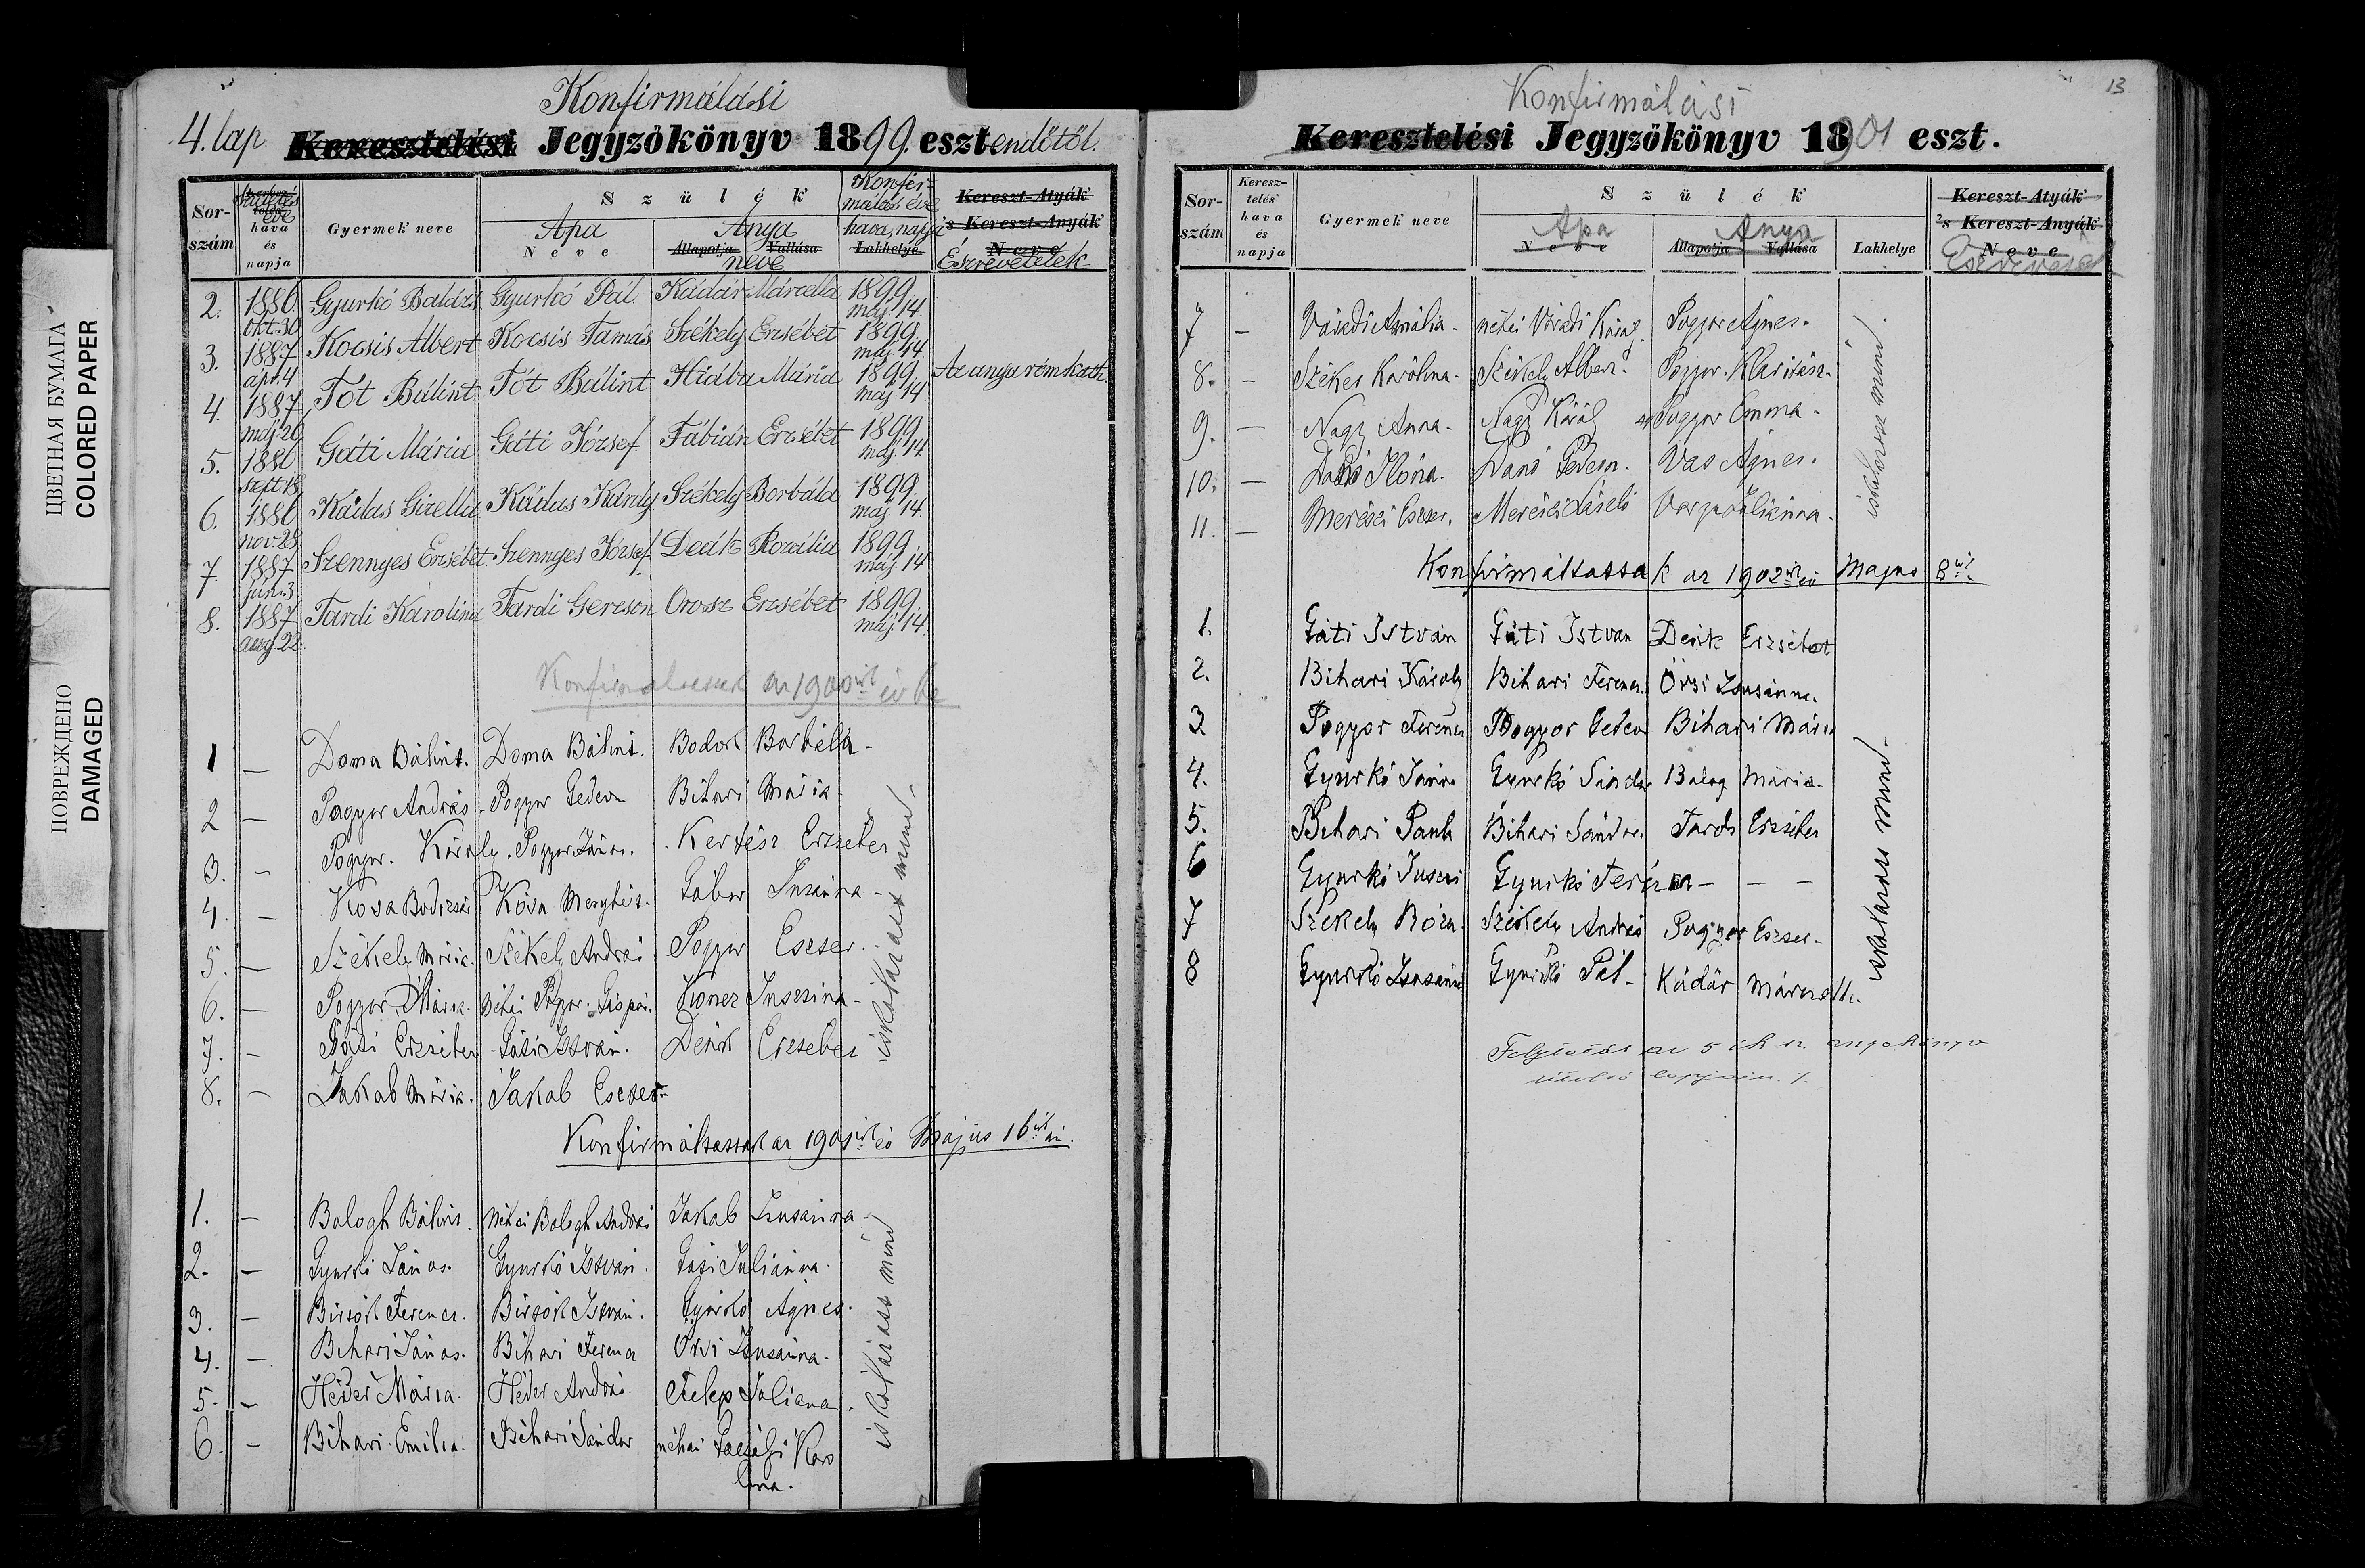 ЦВЕТНАЯ БУМАГА
COLORED PAPER
ПОВРЕЖДЕНО
DAMAGED
Konfirmálási
4. lap Keresztelési Jegyzőkönyv 1899. esztendőtől.
Sorszám
Születés éve hava és napja
Gyermek neve
Szülék
Apa Neve
Anya
Állapotja Vallása
neve
Konfirmálás éve
hava, napja
Lakhelye
Kereszt-Atyák
's Kereszt-Anyák
Neve
Észrevételek
2. 1886. okt. 30 Gyurkó Balázs Gyurkó Pál Kádár Márcella 1899. máj. 14.
3. 1887 ápr. 4 Kocsis Albert Kocsis Tamás Székely Erzsébet 1899 máj. 14
4. 1887 máj. 26 Tót Bálint Tót Bálint Hiába Mária 1899 máj. 14 Az anya róm. kath.
5. 1886 szept. 18 Gáti Mária Gáti József Fábián Erzsébet 1899 máj. 14
6. 1886 nov. 28 Kádas Gizella Kádas Károly Székely Borbála 1899 máj. 14.
7. 1887 jún. 3 Szennyes Erzsébet Szennyes József Deák Rozália 1899 máj. 14
8. 1887 aug. 22. Tardi Karolina Tardi Gerzson Orosz Erzsébet 1899. máj. 14.
Konfirmáltassak az 1900ik év be
1 — Doma Bálint. Doma Bálint. Bodork Borbála -
2 — Pogyor András. Pogyor Gedeon Bihari Mária
3. - Pogyor. Károly. Pogyor János. Kertész Erzsébet
4. - Kósa Kósa Menyhért. Gábor Zsuzsánna -
5. — Székely Mária. Székely András Pogyor Eszter.
6. — Pogyor Mária. néhai Pogyor Gáspár. Zsuzsánna -
7. - Gáti Erzsébet Gáti István. Deák Erzsébet
8. - Jakab Mária. Jakab Eszter
iskolás mind.
Konfirmáltassak az 1901ik év Május 16ik án.
1. — Balogh Bálint. Néhai Balogh András Jakab Zsuzsánna -
2. - Gyurkó János. Gyurkó István. Gáti Juliánna.
3. - Birtók Ferencz. Birtók István. Gyurkó Ágnes.
4. - Bihari János. Bihari Ferencz Örsi Zsuzsánna.
5. - Héder Mária. Héder András. Telep Juliana.
6. - Bihari Emilia. Bihari Sándor néhai Karolina.
iskolás mind
13
Konfirmálási
Keresztelési Jegyzőkönyv 1901 eszt.
Sorszám
Keresztelés hava és napja
Gyermek neve
Szülék
Apa Neve
Anya
Állapotja Vallása
Lakhelye
Kereszt-Atyák
's Kereszt-Anyák
Neve
7 — Váradi Amália. néhai Váradi Károly. Pogyor Ágnes.
8. - Székely Karolina. Székely Albert. Pogyor Klaritász.
9. — Nagy Anna. Nagy Károly Pogyor Emma -
10. — Danó Ilona. Danó Gedeon. Vas Ágnes.
11. — Merészi Eszter. Merészi László Varga Juliánna.
Konfirmáltassak az 1902ik év Május 8ik
1. Gáti István Gáti István Deák Erzsébet
2. Bihari Károly Bihari Ferencz. Örsi Zsuzsánna.
3. Pogyor Ferencz Pogyor Gedeon Bihari Mária
4. Gyurkó János Gyurkó Sándor Balog Mária.
5. Bihari Paula Bihari Sándor. Tardi Erzsébet
6 Gyurkó Gyurkó Terézia - - -
7 Székely Róza. Székely András Pogyor Eszter -
8 Gyurkó Zsuzsánna Gyurkó Pál - Kádár Márczella.
mind
Folytatás az 5 ik sz. anyakönyv
utolsó lapjain.